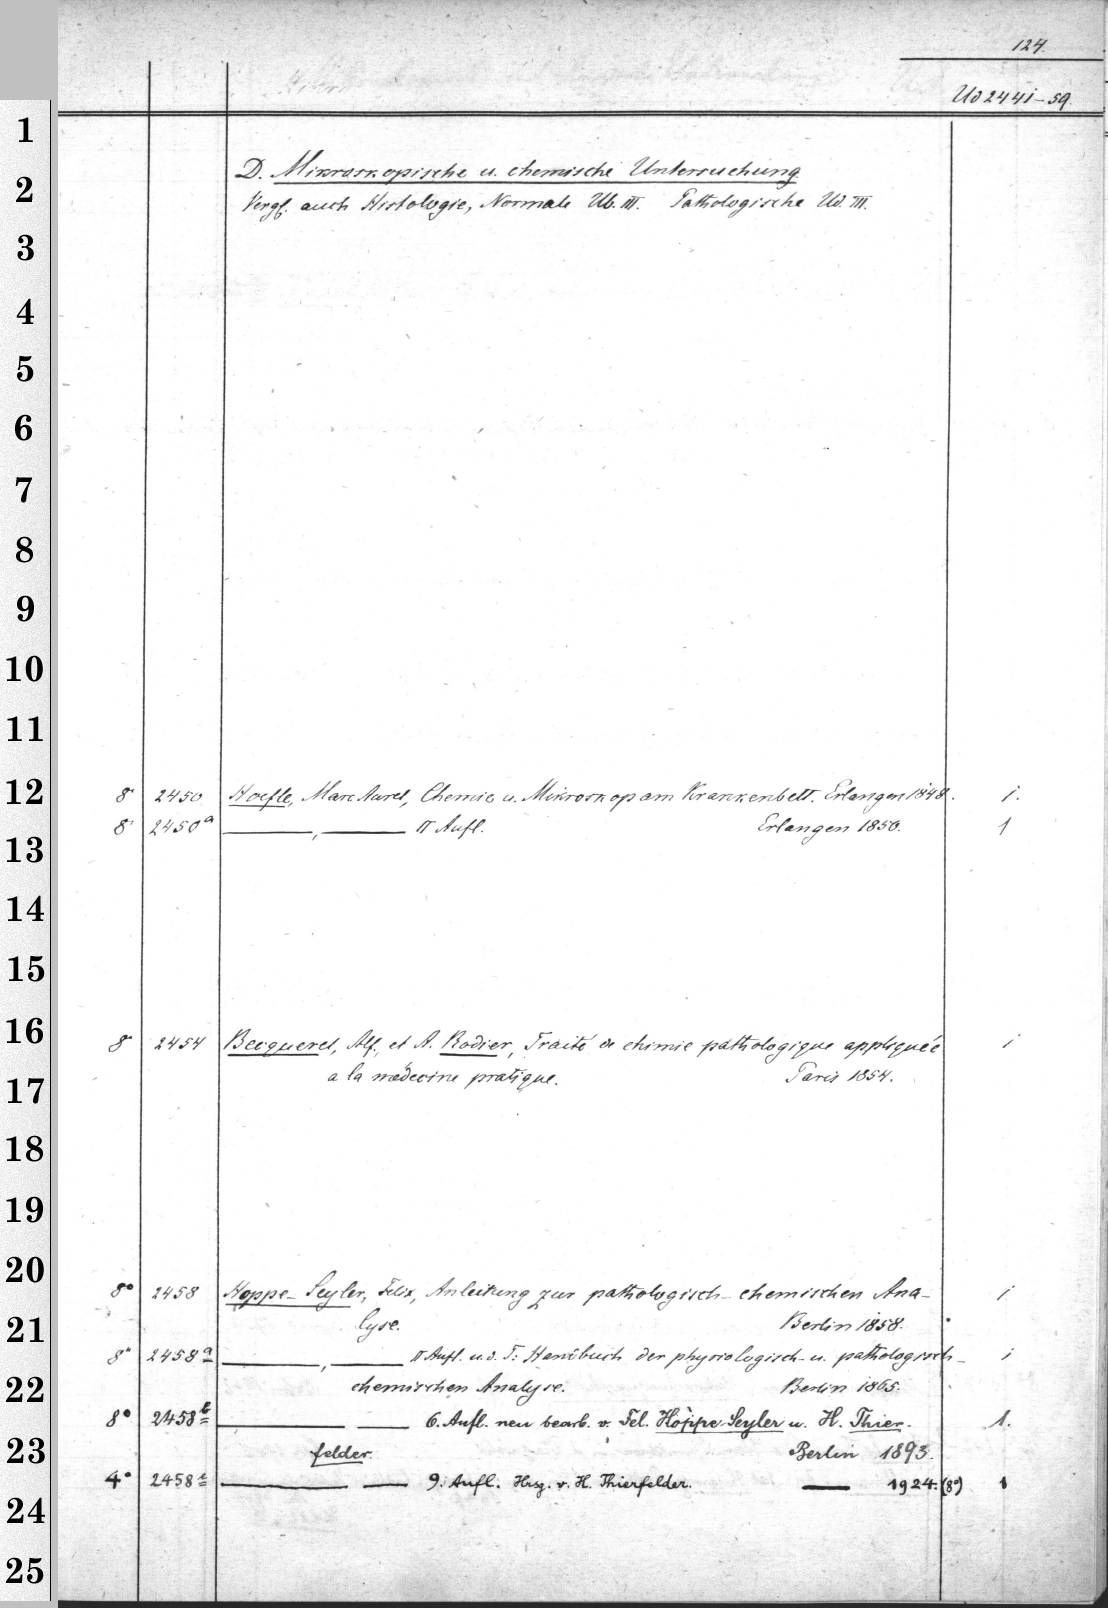 124.
Ud 2441-59.
D. Mikroskopische u. chemische Untersuchung
Vergl. auch Histologie, Normale Ub. III. Pathologische Ud. III.
1
2
3
4
5
6
7
8
9
10
11
12
13
14
15
16
17
18
19
20
21
22
23
24
25
8° 2450 Hoefle, Marc Aurel, Chemie u. Mikroskop am Krankenbett. Erlangen 1848. 1.
8° 2450a ———, ——— II Aufl. Erlangen 1850. 1
8° 2454 Becquerel, Alf., et A. Rodier, Traité de chimie pathologique appliquée 1
a la médecine pratique. Paris 1854.
8° 2458 Hoppe-Seyler, Felix, Anleitung zur pathologisch-chemischen Ana- 1
lyse. Berlin 1858.
8° 2458a ———, ——— II Aufl. u. d. T.: Handbuch der physiologisch- u. pathologisch- 1
chemischen Analyse. Berlin 1865.
8° 2458b ——— ——— 6. Aufl. neu bearb. v. Fel. Hoppe-Seyler u. H. Thier- 1.
felder. Berlin 1893.
4° 2458c ——— ——— 9. Aufl. Hrsg. v. H. Thierfelder. ——— 1924. (8°) 1